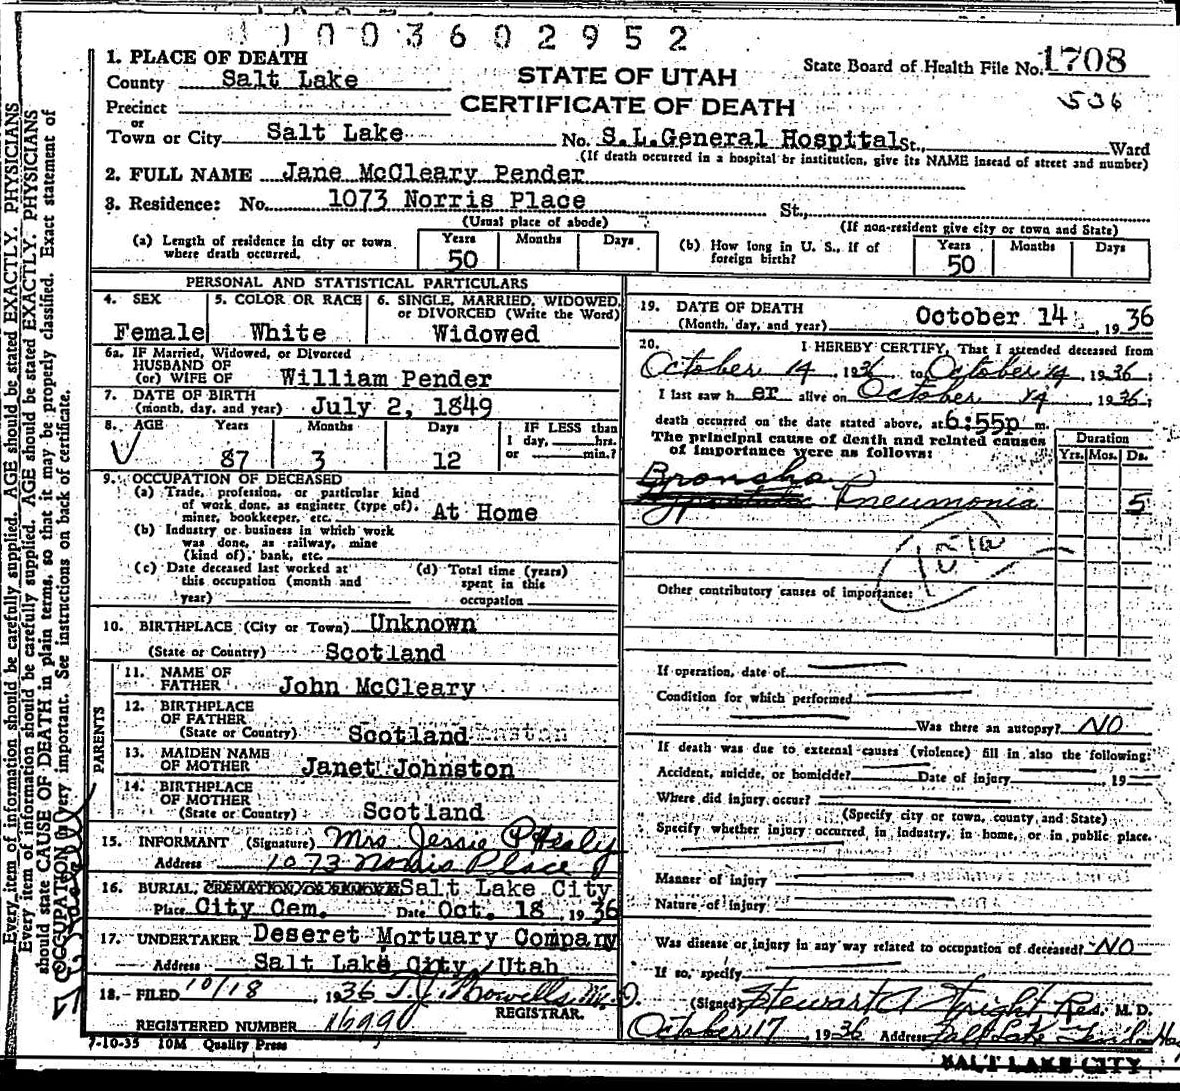 1003602952
1. PLACE OF DEATH
County Salt Lake
Precinct
or
Town or City Salt Lake
STATE OF UTAH
CERTIFICATE OF DEATH
State Board of Health File No. 1708
536
No. S.L.General Hospital St., Ward
(If death occurred in a hospital or institution, give its NAME insead of street and number)
2. FULL NAME Jane McCleary Pender
3. Residence: No. 1073 Norris Place St.,
(Usual place of abode) (If non-resident give city or town and State)
(a) Length of residence in city or town where death occurred. Years 50 Months Days
(b) How long in U. S., if of foreign birth? Years 50 Months Days
PERSONAL AND STATISTICAL PARTICULARS
4. SEX Female
5. COLOR OR RACE White
6. SINGLE, MARRIED, WIDOWED, or DIVORCED (Write the Word) Widowed
6a. IF Married, Widowed, or Divorced
HUSBAND OF
(or) WIFE OF William Pender
7. DATE OF BIRTH
(month, day, and year) July 2, 1849
8. AGE Years 87 Months 3 Days 12
IF LESS than
1 day, hrs.
or min.?
9. OCCUPATION OF DECEASED
(a) Trade, profession, or particular kind
of work done, as engineer (type of),
miner, bookkeeper, etc. At Home
(b) Industry or business in which work
was done, as railway, mine
(kind of), bank, etc.
(c) Date deceased last worked at
this occupation (month and
year)
(d) Total time (years)
spent in this
occupation
10. BIRTHPLACE (City or Town) Unknown
(State or Country) Scotland
PARENTS
11. NAME OF
FATHER John McCleary
12. BIRTHPLACE
OF FATHER
(State or Country) Scotland
13. MAIDEN NAME
OF MOTHER Janet Johnston
14. BIRTHPLACE
OF MOTHER
(State or Country) Scotland
15. INFORMANT (Signature) Mrs Jessie P Healy
Address 1073 Norris Place
16. BURIAL, CREMATION OR REMOVE Salt Lake City
Place City Cem. Date Oct. 18, 1936
17. UNDERTAKER Deseret Mortuary Company
Address Salt Lake City, Utah
18. FILED 10/18, 1936 T.J. Howells M.D.
REGISTRAR.
REGISTERED NUMBER
7-10-35 10M Quality Press
19. DATE OF DEATH
(Month, day, and year) October 14, 1936
20. I HEREBY CERTIFY, That I attended deceased from
October 14, 1936 to October 14, 1936;
I last saw h er alive on October 14, 1936;
death occurred on the date stated above, at 6:55p m.
The principal cause of death and related causes
of importance were as follows:
Duration
Yrs. Mos. Ds.
Broncho
Pneumonia 5
Other contributory causes of importance:
If operation, date of
Condition for which performed
Was there an autopsy? NO
If death was due to external causes (violence) fill in also the following:
Accident, suicide, or homicide? Date of injury 19
Where did injury occur?
(Specify city or town, county and State)
Specify whether injury occurred in industry, in home, or in public place.
Manner of injury
Nature of injury
Was disease or injury in any way related to occupation of deceased? NO
If so, specify
(Signed) Stewart A Wright Res. M. D.
October 17, 1936 Address Salt Lake
SALT LAKE CITY
Every item of information should be carefully supplied. AGE should be stated EXACTLY. PHYSICIANS
Every item of information should be carefully supplied. AGE should be stated EXACTLY. PHYSICIANS
should state CAUSE OF DEATH in plain terms, so that it may be properly classified. Exact statement of
OCCUPATION is very important. See instructions on back of certificate.